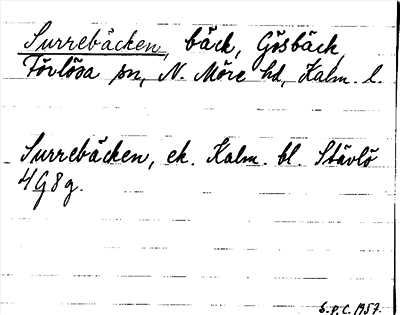 Surrebäcken, bäck, Gösbäck,
Förlösa sn, N. Möre hd, Kalm. l.
Surrebäcken, ek. Kalm. bl. Stävlö
4G8g.
S.P.C. 1957.